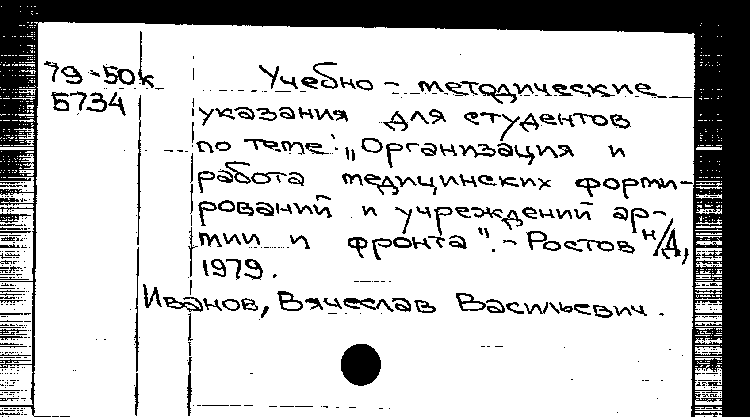 79-50к
Б734
Учебно - методические
указания для студентов
по теме: „Организация и
работа медицинских форми-
рований и учреждений ар-
мии и фронта". - Ростов н/Д,
1979.
Иванов, Вячеслав Васильевич.